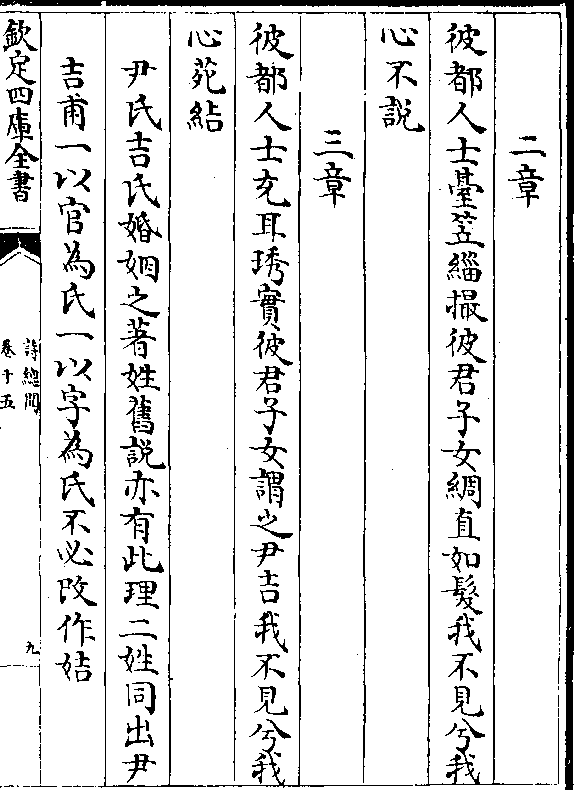 二章
彼都人士臺笠緇撮彼君子女綢直如髮我不見兮我
心不說
三章
彼都人士充耳琇實彼君子女謂之尹吉我不見兮我
心苑結
尹氏吉氏婚姻之著姓舊説亦有此理二姓同出尹
吉甫一以官為氏一以字為氏不必改作姞
欽定四庫全書
詩總聞
卷十五
九